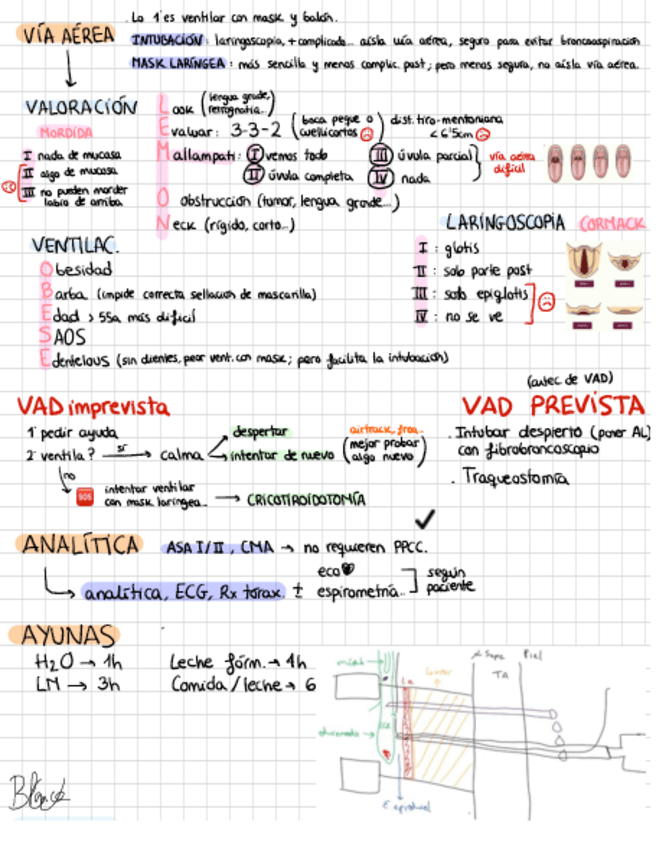 . Lo 1º es ventilar con mask y balón.
VÍA AÉREA
INTUBACIÓN: laringoscopia, + complicado... aísla vía aérea, seguro para evitar broncoaspiración
MASK LARÍNGEA: más sencilla y menos complic. post; pero menos segura, no aísla vía aérea.
VALORACIÓN
MORDIDA
I nada de mucosa
II algo de mucosa
III no pueden morder
labio de arriba
Look (lengua grade, retrognatia..)
Evaluar: 3-3-2 (boca peque o cuellicortos) dist. tiro-mentoniana
< 6'5cm
Mallampati: I vemos todo III úvula parcial
II úvula completa IV nada
vía aérea
difícil
Obstrucción (tumor, lengua grande...)
Neck (rígido, corto...)
VENTILAC.
Obesidad
Barba (impide correcta sellación de mascarilla)
Edad > 55a más difícil
SAOS
Edentelous (sin dientes, peor vent. con mask; pero facilita la intubación)
LARINGOSCOPIA CORMACK
I : glotis
II : solo parte post
III : solo epiglotis
IV : no se ve
VAD imprevista
1º pedir ayuda
2º ventila? sí calma
despertar
intentar de nuevo
(mejor probar
algo nuevo)
no
SOS intentar ventilar
con mask laríngea... → CRICOTIROIDOTOMÍA
(antec de VAD)
VAD PREVISTA
. Intubar despierto (poner AL)
con fibrobroncoscopio
. Traqueostomía
ANALÍTICA ASA I/II, CMA → no requieren PPCC.
analítica, ECG, Rx torax. ±
eco
espirometría..
según
paciente
AYUNAS
H2O → 1h Leche fórm. → 4h
LM → 3h Comida / leche → 6
Piel
TA